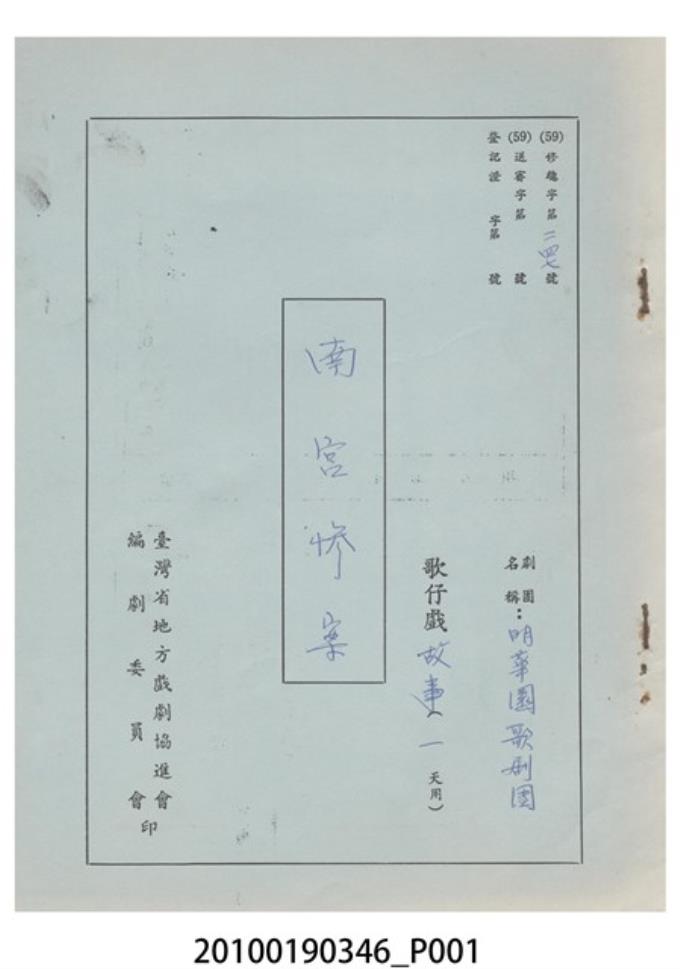 (59)修編字第二四七號
(59)送審字第　號
登記證　字第　號
劇團名稱：明華園歌劇團
歌仔戲故事（一天用）
南宮慘案
臺灣省地方戲劇協進會
編劇委員會印
20100190346_P001